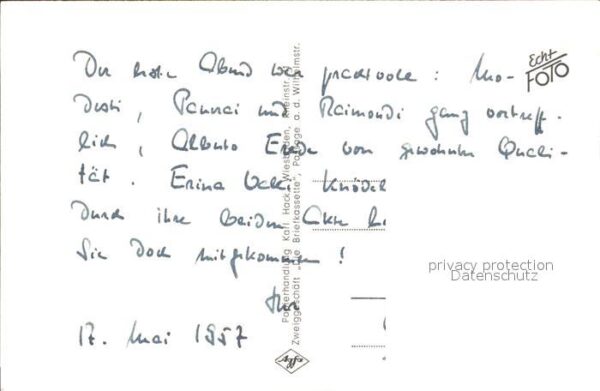 Der erste Abend war prachtvoll : Mo-
desti, Pannai und Raimondi ganz vortreff-
lich, Alberto Erede von gewohnter Quali-
tät. Erina Valli knödelt
durch ihre beiden Akte
Sie doch mitgekommen!
Ihr
17. Mai 1957
Echt
FOTO
Papierhandlung Karl Hack, Wiesbaden, Rheinstr.
Zweiggeschäft „Die Briefkassette", Passage a. d. Wilhelmstr.
Agfa
privacy protection
Datenschutz